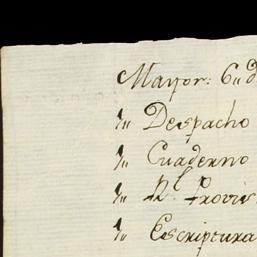 Mayor: 6„ d
1„ Despacho
1„ Cuaderno
1„ Rl. Provis
1„ Escriptura